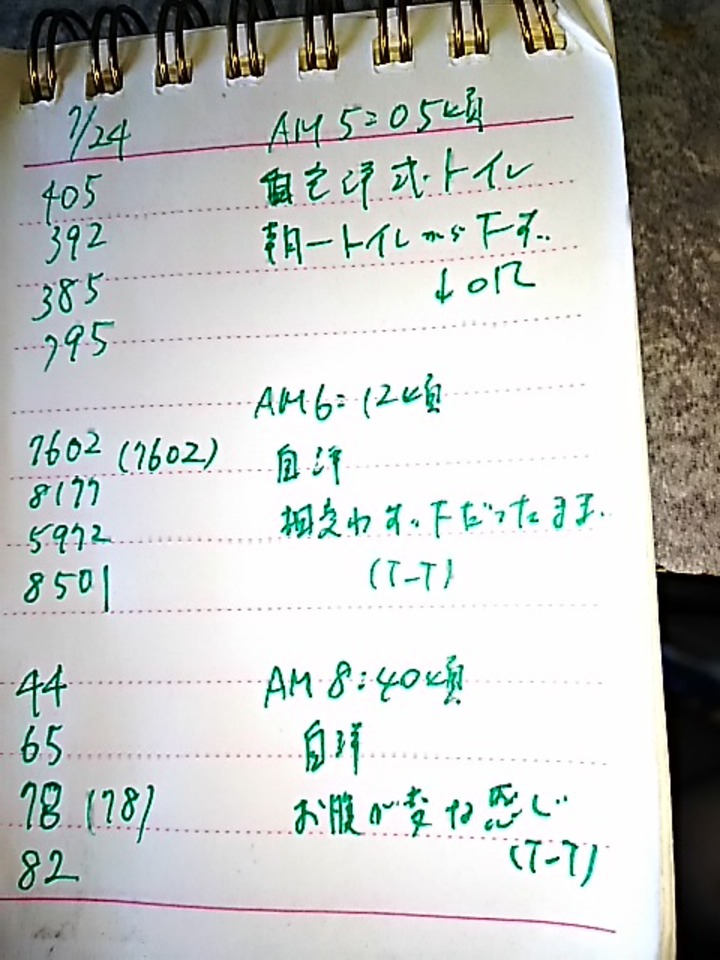 7/24 AM 5:05頃
405 自宅洋式トイレ
392 朝一トイレから下す..
385
795
AM6:12頃
7602 (7602) 自洋
8177
5972 相変わらず、下だったまま.
8501 (T-T)
44 AM 8:40頃
65 自洋
78 (78) お腹が変な感じ
82 (T-T)